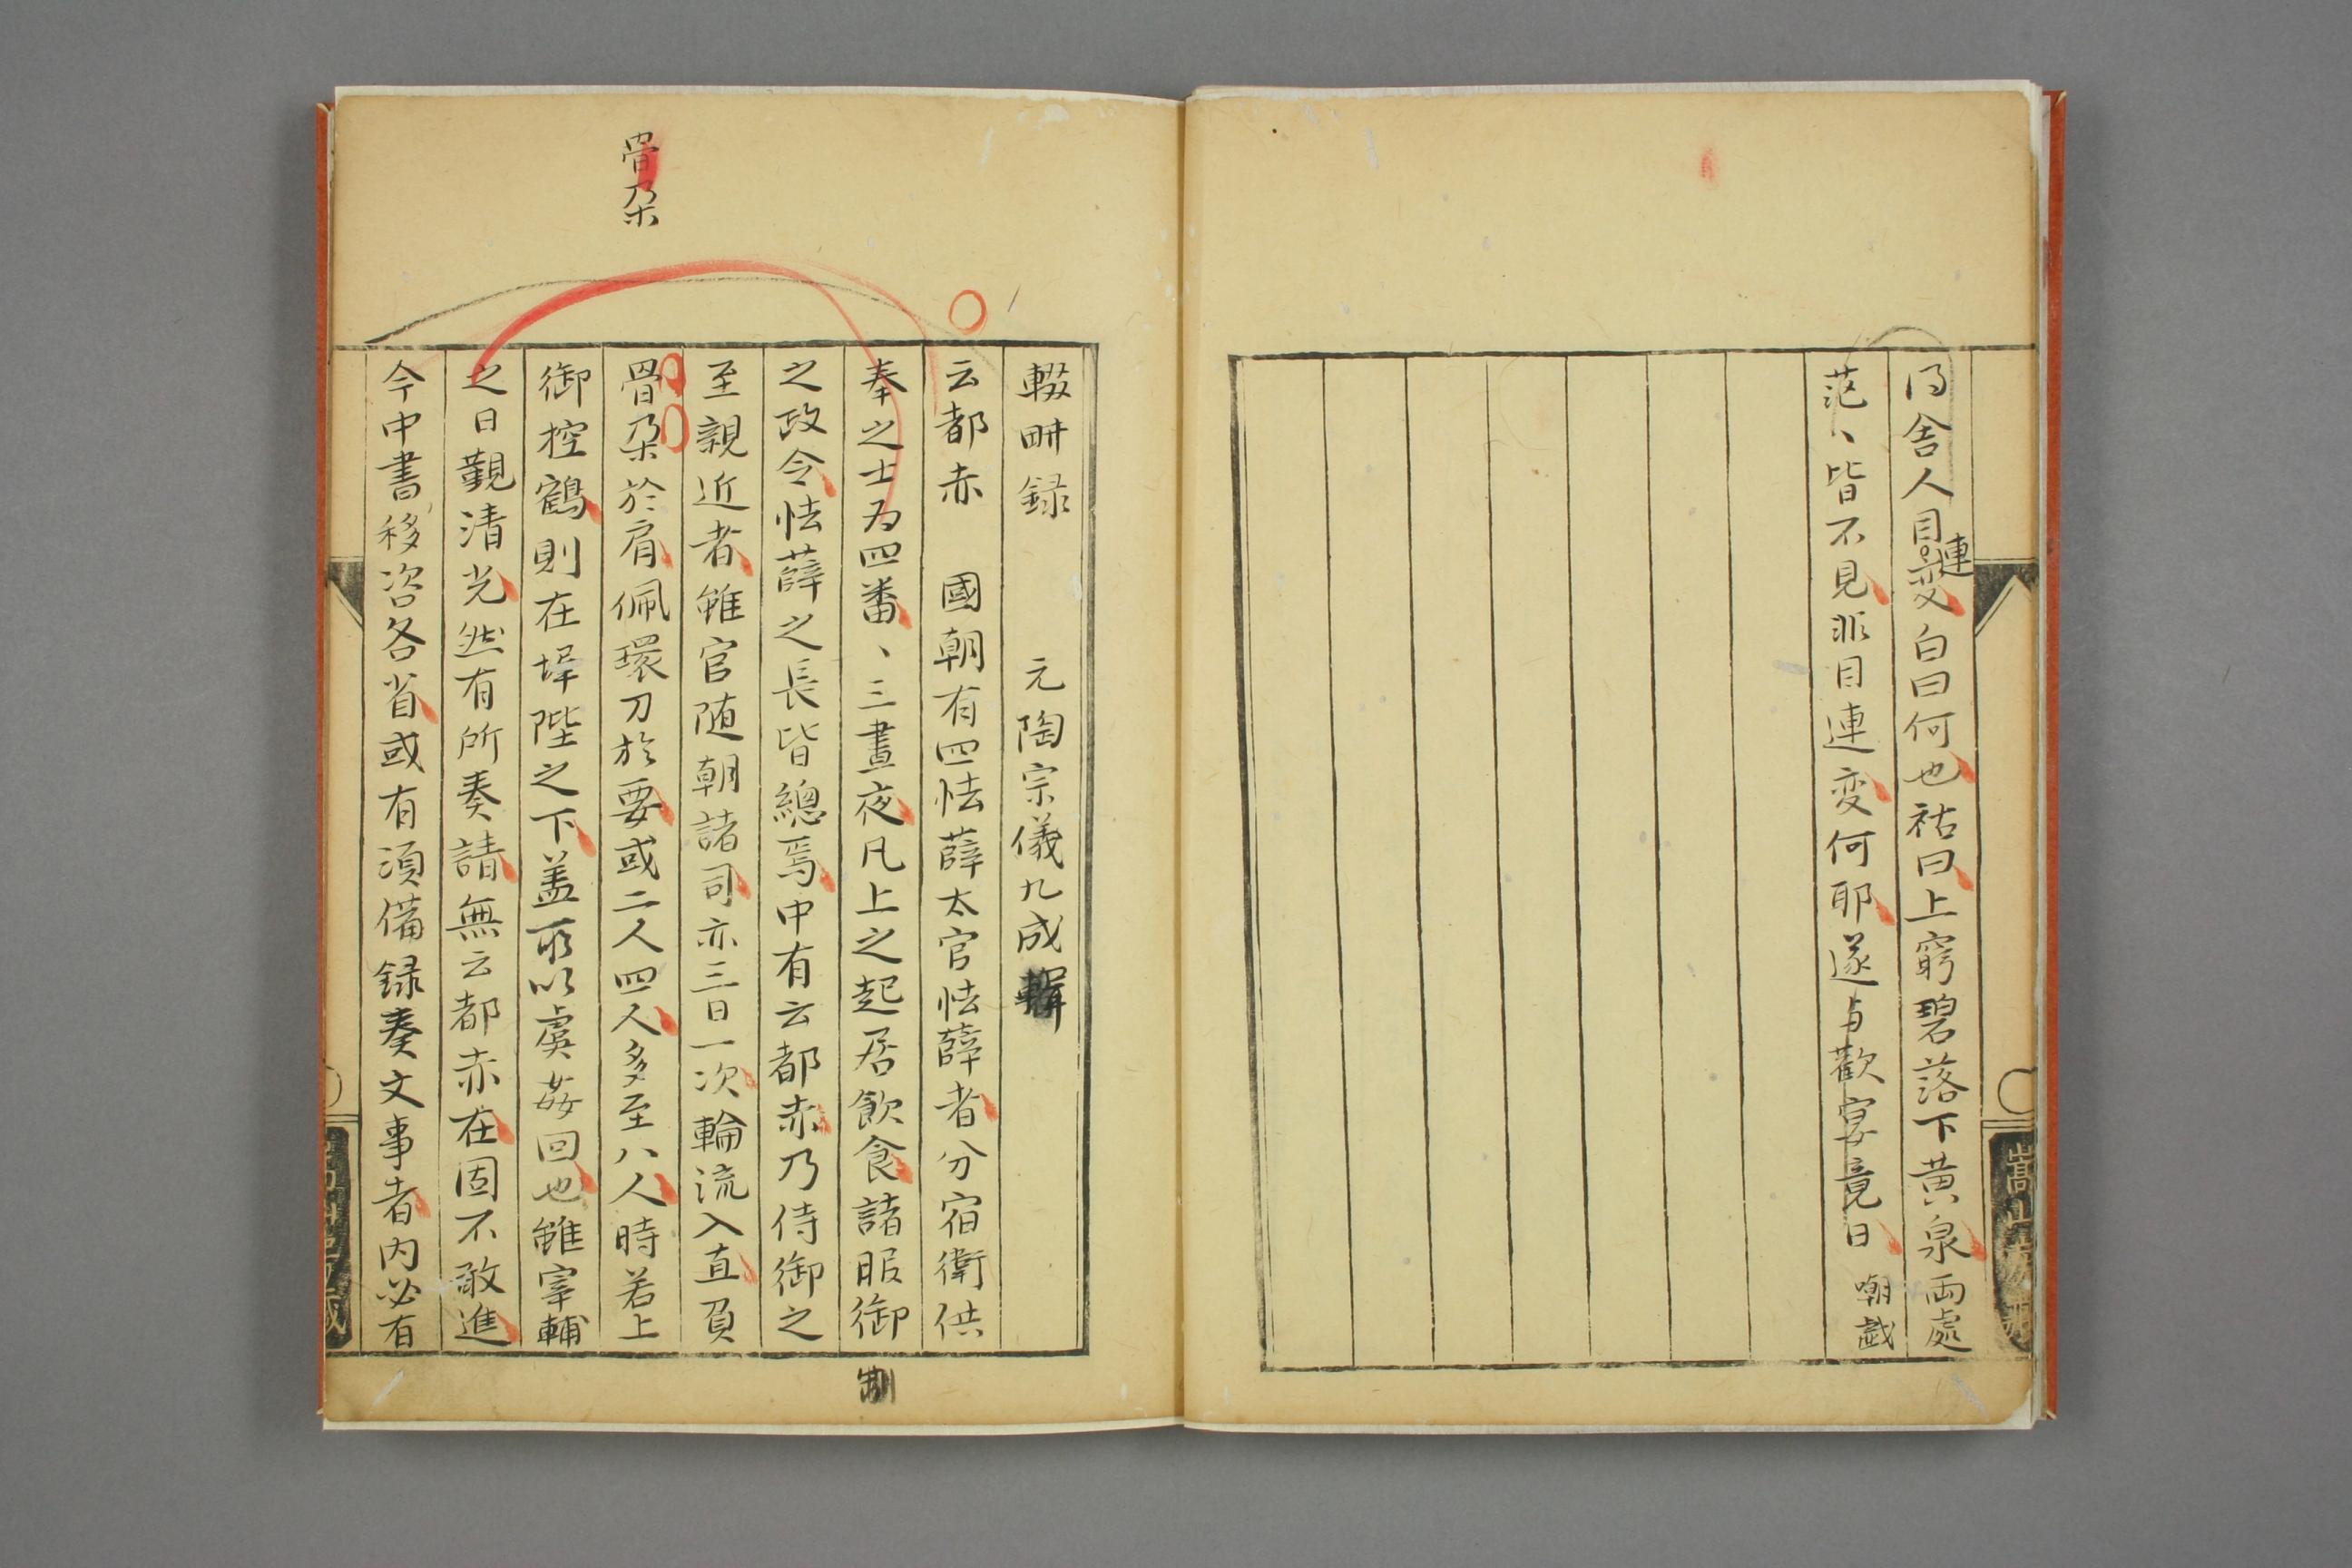 得舍人目連変白曰何也祜曰上窮碧落下黄泉兩處
茫、皆不見非目連変何耶遂与歡宴竟日 嘲戯
輟畊録 元陶宗儀九成輯
云都赤 國朝有四怯薛太官怯薛者分宿衛供
奉之士为四番、三晝夜凡上之起居飲食諸服御
之政令怯薛之長皆總焉中有云都赤乃侍御之
至親近者雖官随朝諸司亦三日一次輪流入直負
骨朶於肩佩環刀於要或二人四人多至八人時若上
御控鶴則在墀陛之下盖所以虞姦回也雖宰輔
之日覲清光然有所奏請無云都赤在固不敢進
今中書移咨各省或有湏備録奏文事者内必有
骨朶
制